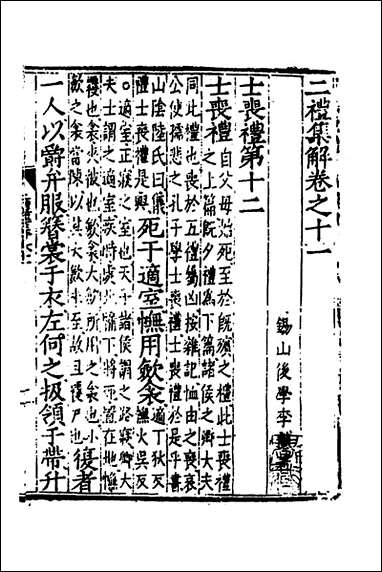 二禮集解卷之十二
錫山後學李
士喪禮第十二
士喪禮自父母始死至於既殯之禮此士喪禮
之上篇既夕禮為下篇諸侯之卿大夫
同此禮也喪於五禮屬凶按雜記恤由之喪哀
公使孺悲之孔子學士喪禮士喪禮於是乎書
山陰陸氏曰儀
禮士喪禮是與死于適室幠用斂衾適丁狄反
幠火吳反
○適室正寢之室也天子諸侯謂之路寢卿大
夫士謂之適室疾時處北牖下將死置在地幠
覆也衾衾被也斂衾大斂所用之衾也小
斂之衾當陳以其大斂未至故且覆尸也復者
一人以爵弁服簪裳于衣左何之扱領于帶升